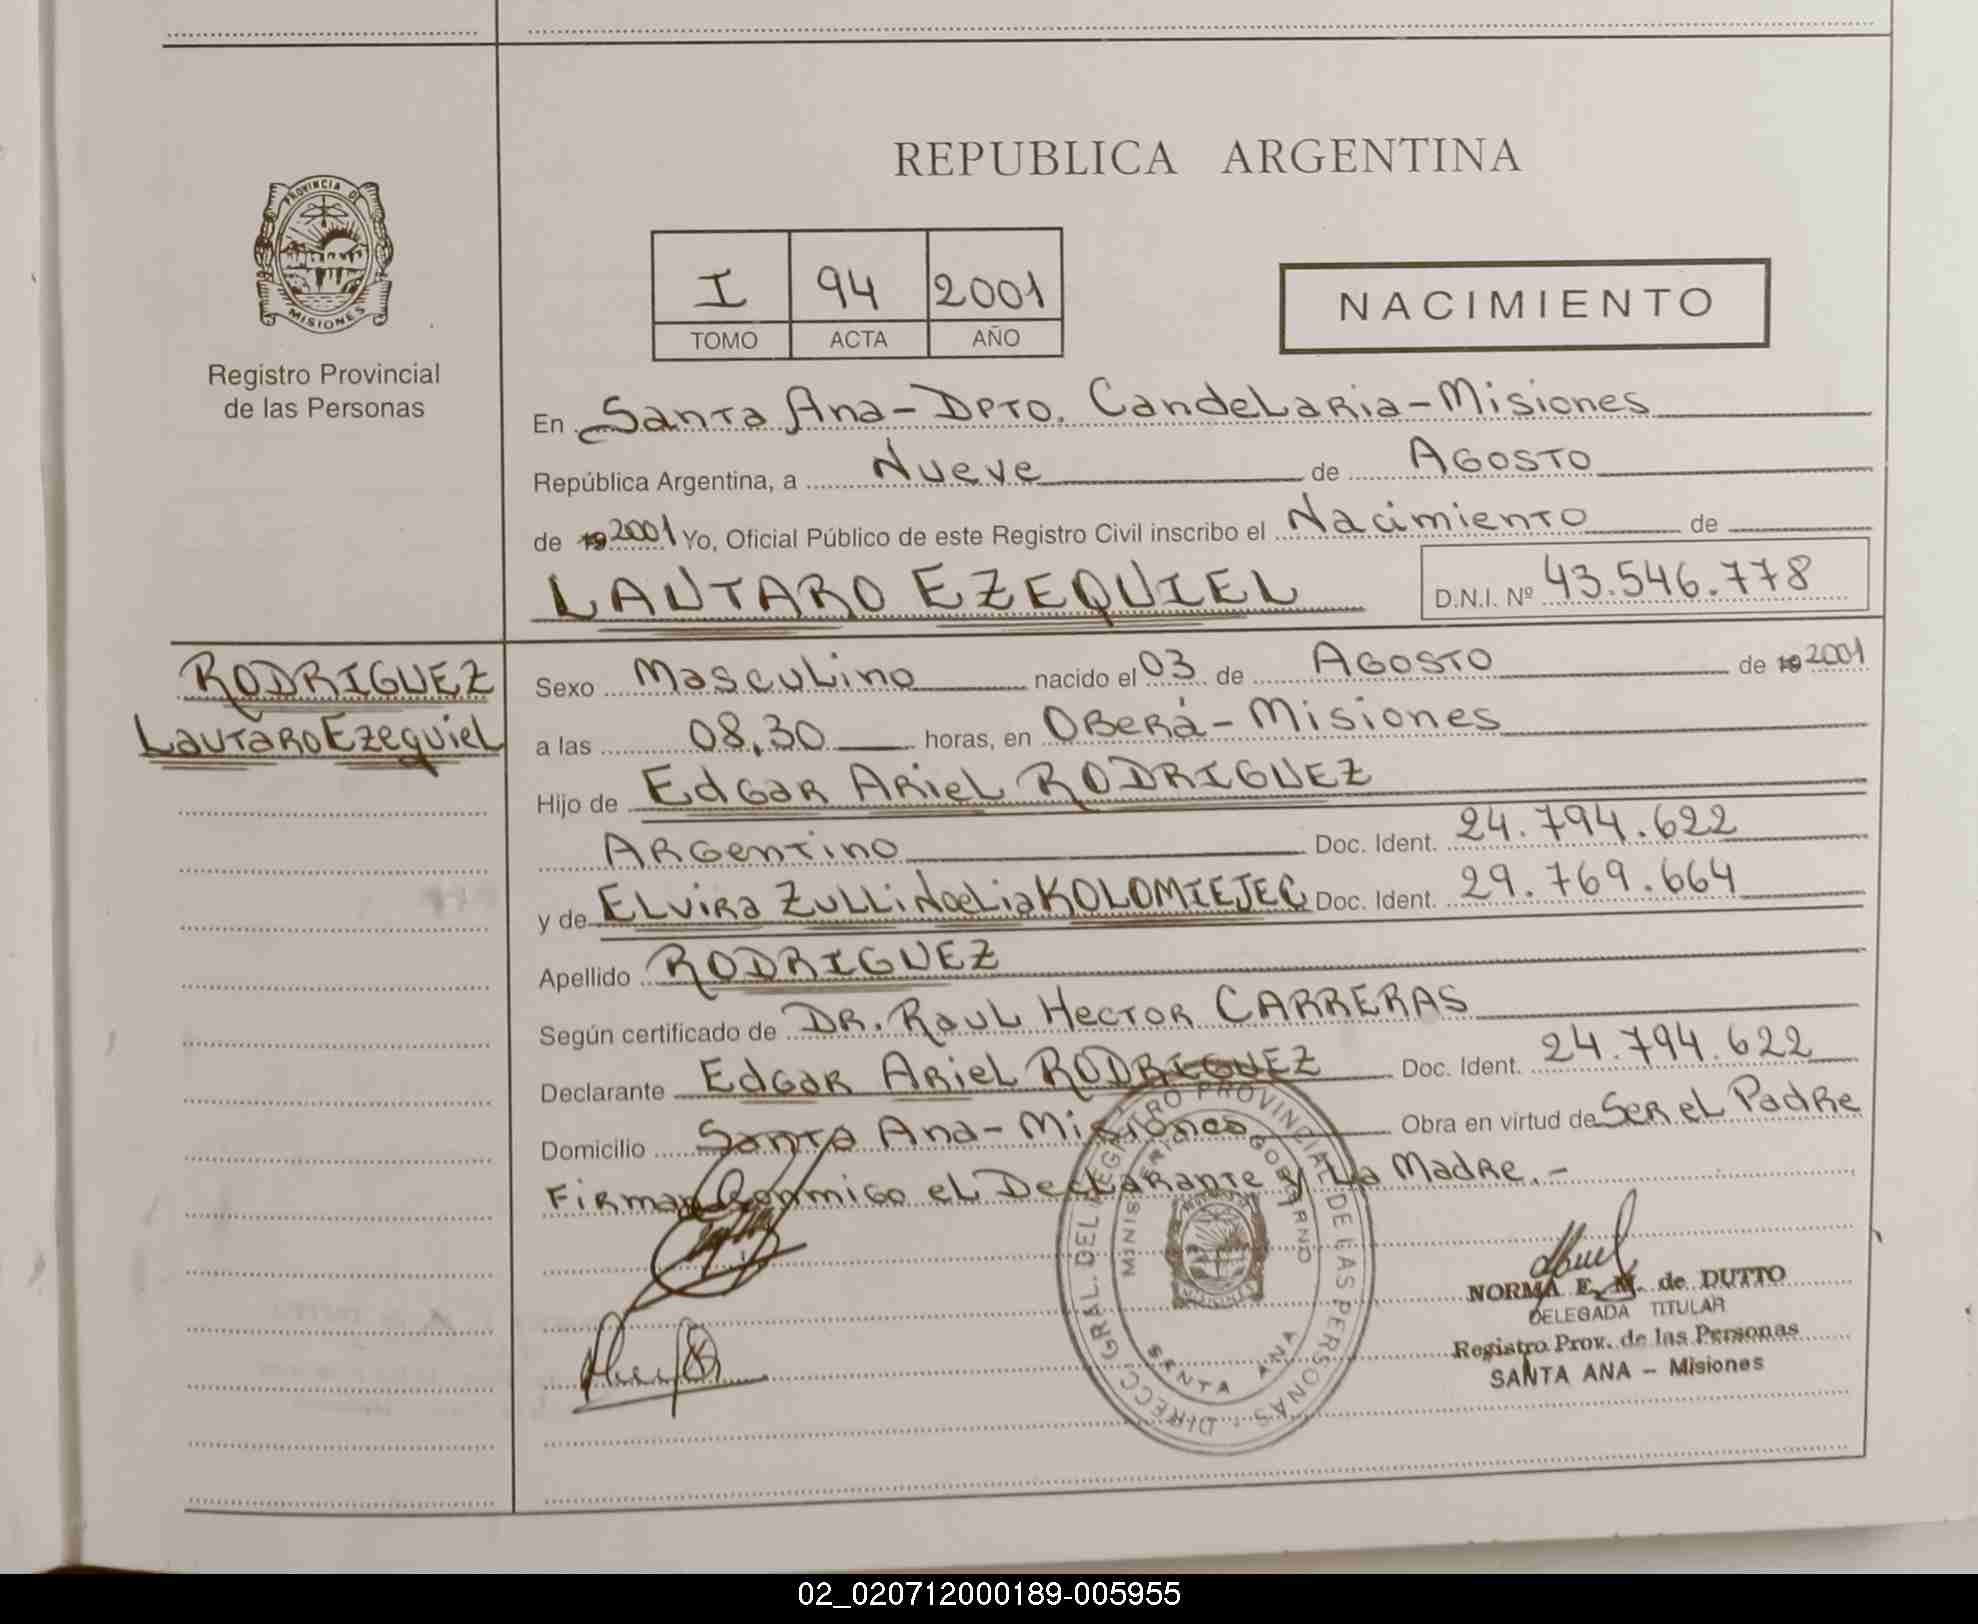 PROVINCIA DE
MISIONES
Registro Provincial
de las Personas
RODRIGUEZ
Lautaro Ezequiel
REPUBLICA ARGENTINA
I 94 2001
TOMO ACTA AÑO
NACIMIENTO
En Santa Ana - Dpto. Candelaria - Misiones
República Argentina, a Nueve de Agosto
de 19 2001 Yo, Oficial Público de este Registro Civil inscribo el Nacimiento de
LAUTARO EZEQUIEL D.N.I. Nº 43.546.778
Sexo Masculino nacido el 03 de Agosto de 19 2001
a las 08,30 horas, en Oberá - Misiones
Hijo de Edgar Ariel RODRIGUEZ
Argentino Doc. Ident. 24.794.622
y de Elvira Zulli Noelia KOLOMIEJEC Doc. Ident. 29.769.664
Apellido RODRIGUEZ
Según certificado de DR. Raul Hector CARRERAS
Declarante Edgar Ariel RODRIGUEZ Doc. Ident. 24.794.622
Domicilio Santa Ana - Misiones Obra en virtud de Ser el Padre
Firman Conmigo el Declarante y La Madre. -
DIRECC. GRAL. DEL REGISTRO PROVINCIAL DE LAS PERSONAS
MINISTERIO GOBIERNO
SANTA ANA
NORMA E. M. de DUTTO
DELEGADA TITULAR
Registro Prov. de las Personas
SANTA ANA - Misiones
02_020712000189-005955